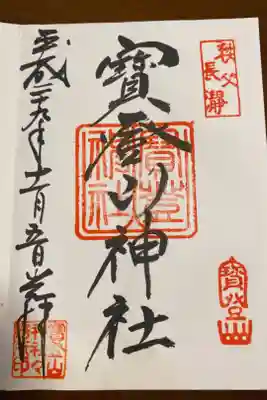 秩父
長瀞
寳登山神社
寳登
神社
寳登山
平成二九年十一月五日奉拝